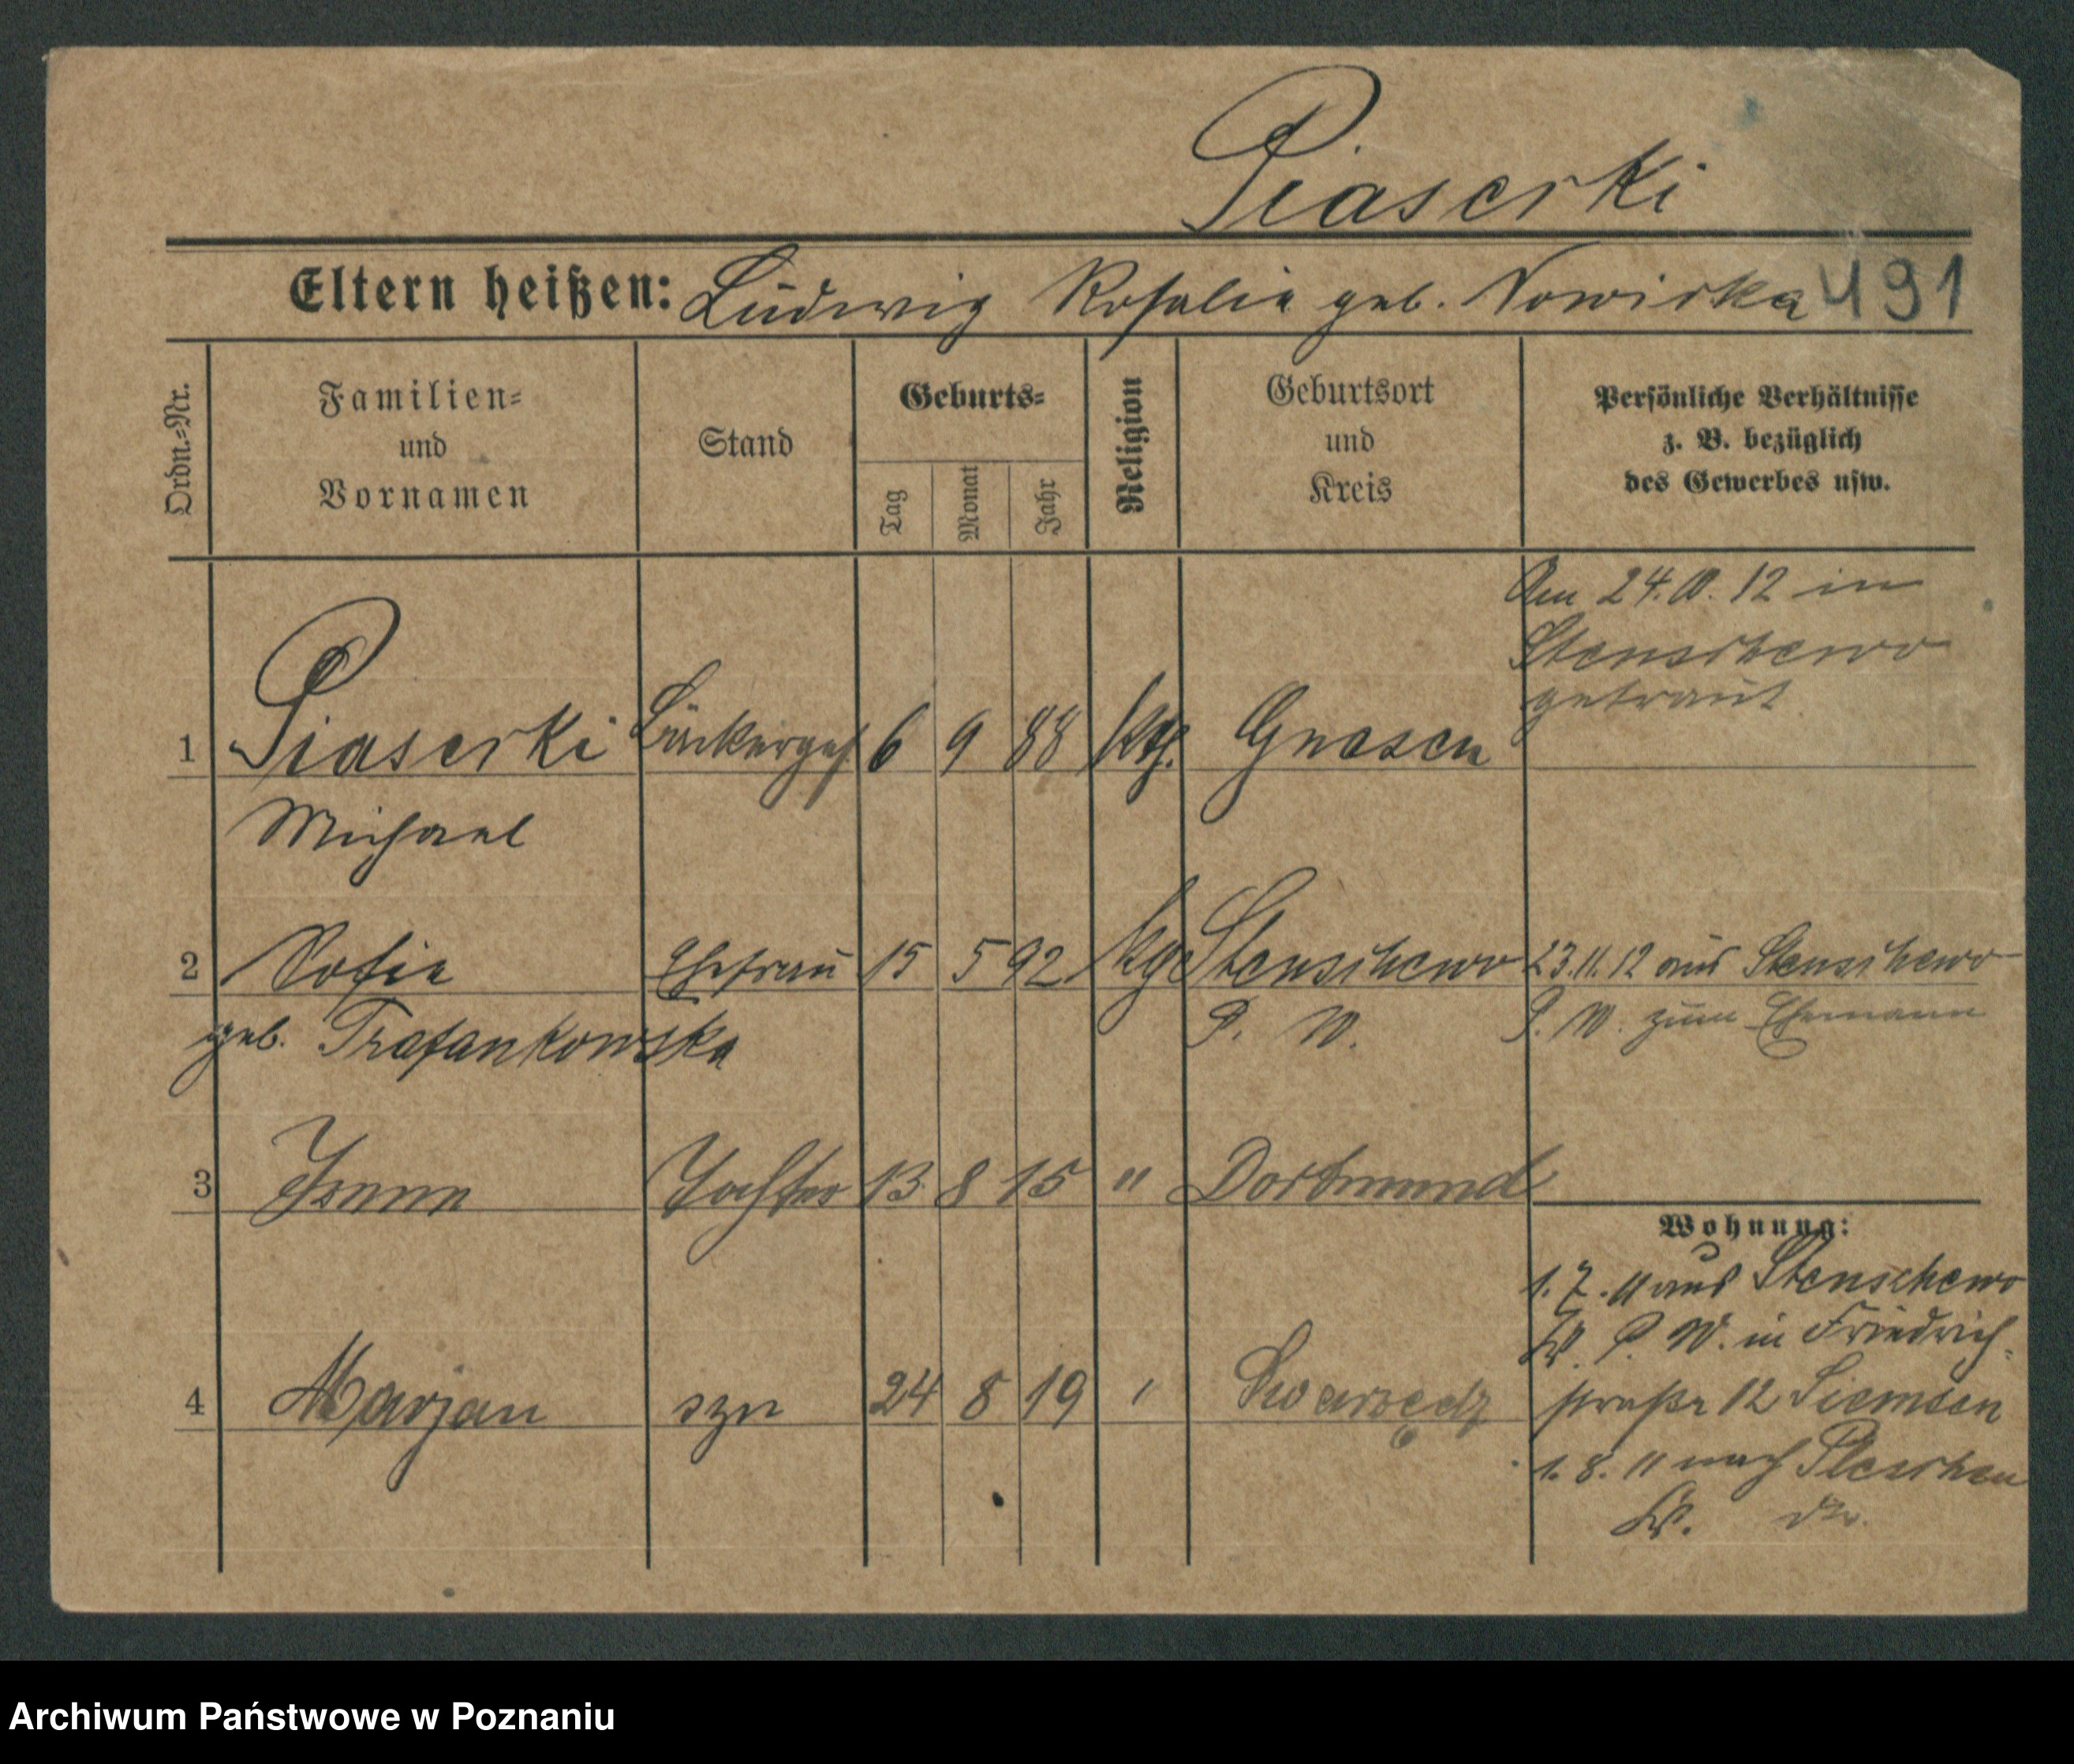 Piaserki
Eltern heißen: Ludwig Rosalie geb. Nowicka 491
Ordn.=Nr.
Familien=
und
Vornamen
Stand
Geburts=
Tag
Monat
Jahr
Religion
Geburtsort
und
Kreis
Persönliche Verhältnisse
z. B. bezüglich
des Gewerbes usw.
Am 24.10.12 in
Stenschewo
getraut
1 Piaserki Bäckerges. 6 9 88 kth. Gnesen
Michael
2 Sofie Ehefrau 15 5 92 Stenschewo 23.11.12 aus Stenschewo
geb. Tratankowska P. W. P. W. zum Ehemann
3 Tochter 13 8 15 " Dortmund
Wohnung:
1.7.11 aus Stenschewo
P. W. in Friedrich-
4 Marjan syn 24 8 19 " Swarzędz straße 12 Siemsen
1.8.11 nach Pleschen